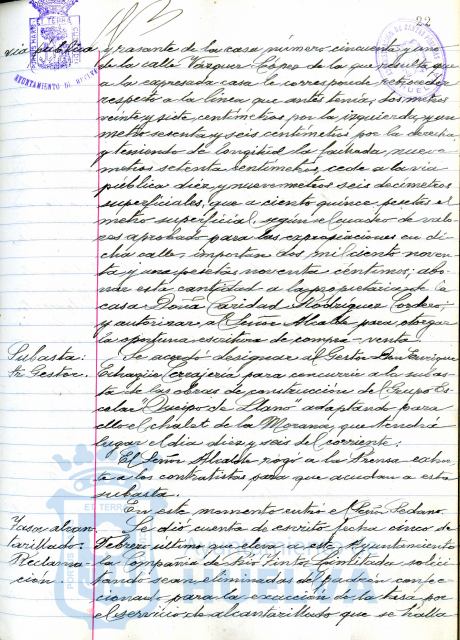 22
AYUNTAMIENTO DE HUELVA
via pública y rasante de la casa número cincuenta y uno
de la calle Vázquez López de la que resulta que
a la expresada casa le corresponde retroceder
respecto a la línea que antes tenía, dos metros
veinte y siete centímetros por la izquierda, y un
metro sesenta y seis centímetros por la derecha,
y teniendo de longitud la fachada nueve
metros setenta centímetros, cede a la vía
pública diez y nueve metros seis decímetros
superficiales, que a ciento quince pesetas el
metro superficial, según el cuadro de valo-
res aprobado para las expropiaciones en di-
cha calle, importan dos mil ciento noven-
ta y una pesetas noventa céntimos; abo-
nar esta cantidad a la propietaria de la
casa Doña Caridad Rodríguez Cordero;
y autorizar al Señor Alcalde para otorgar
la oportuna escritura de compra-venta.
Subasta:
tr Gestor.
Se acordó designar al Gestor Don Enrique
Echagüe Cerajería para concurrir a la subas-
ta de las obras de construcción del Grupo Es-
colar "Queipo de Llano" adaptando para
ello el chalet de la Morana, que tendrá
lugar el día diez y seis del corriente.
El Señor Alcalde rogó a la Prensa exhor-
te a los contratistas para que acudan a esta
subasta.
En este momento entró el Señor Sedano.
Tasa alcan-
tarillado:
Reclama-
ción.
Se dió cuenta de escrito fecha cinco de
Febrero último, eleva a este Ayuntamiento
la Compañía de Rio Tinto Limitada solici-
tando sean eliminadas del padrón confec-
cionado para la exacción de la tasa por
el servicio de alcantarillado que se halla
Ayuntamiento de
HUELVA